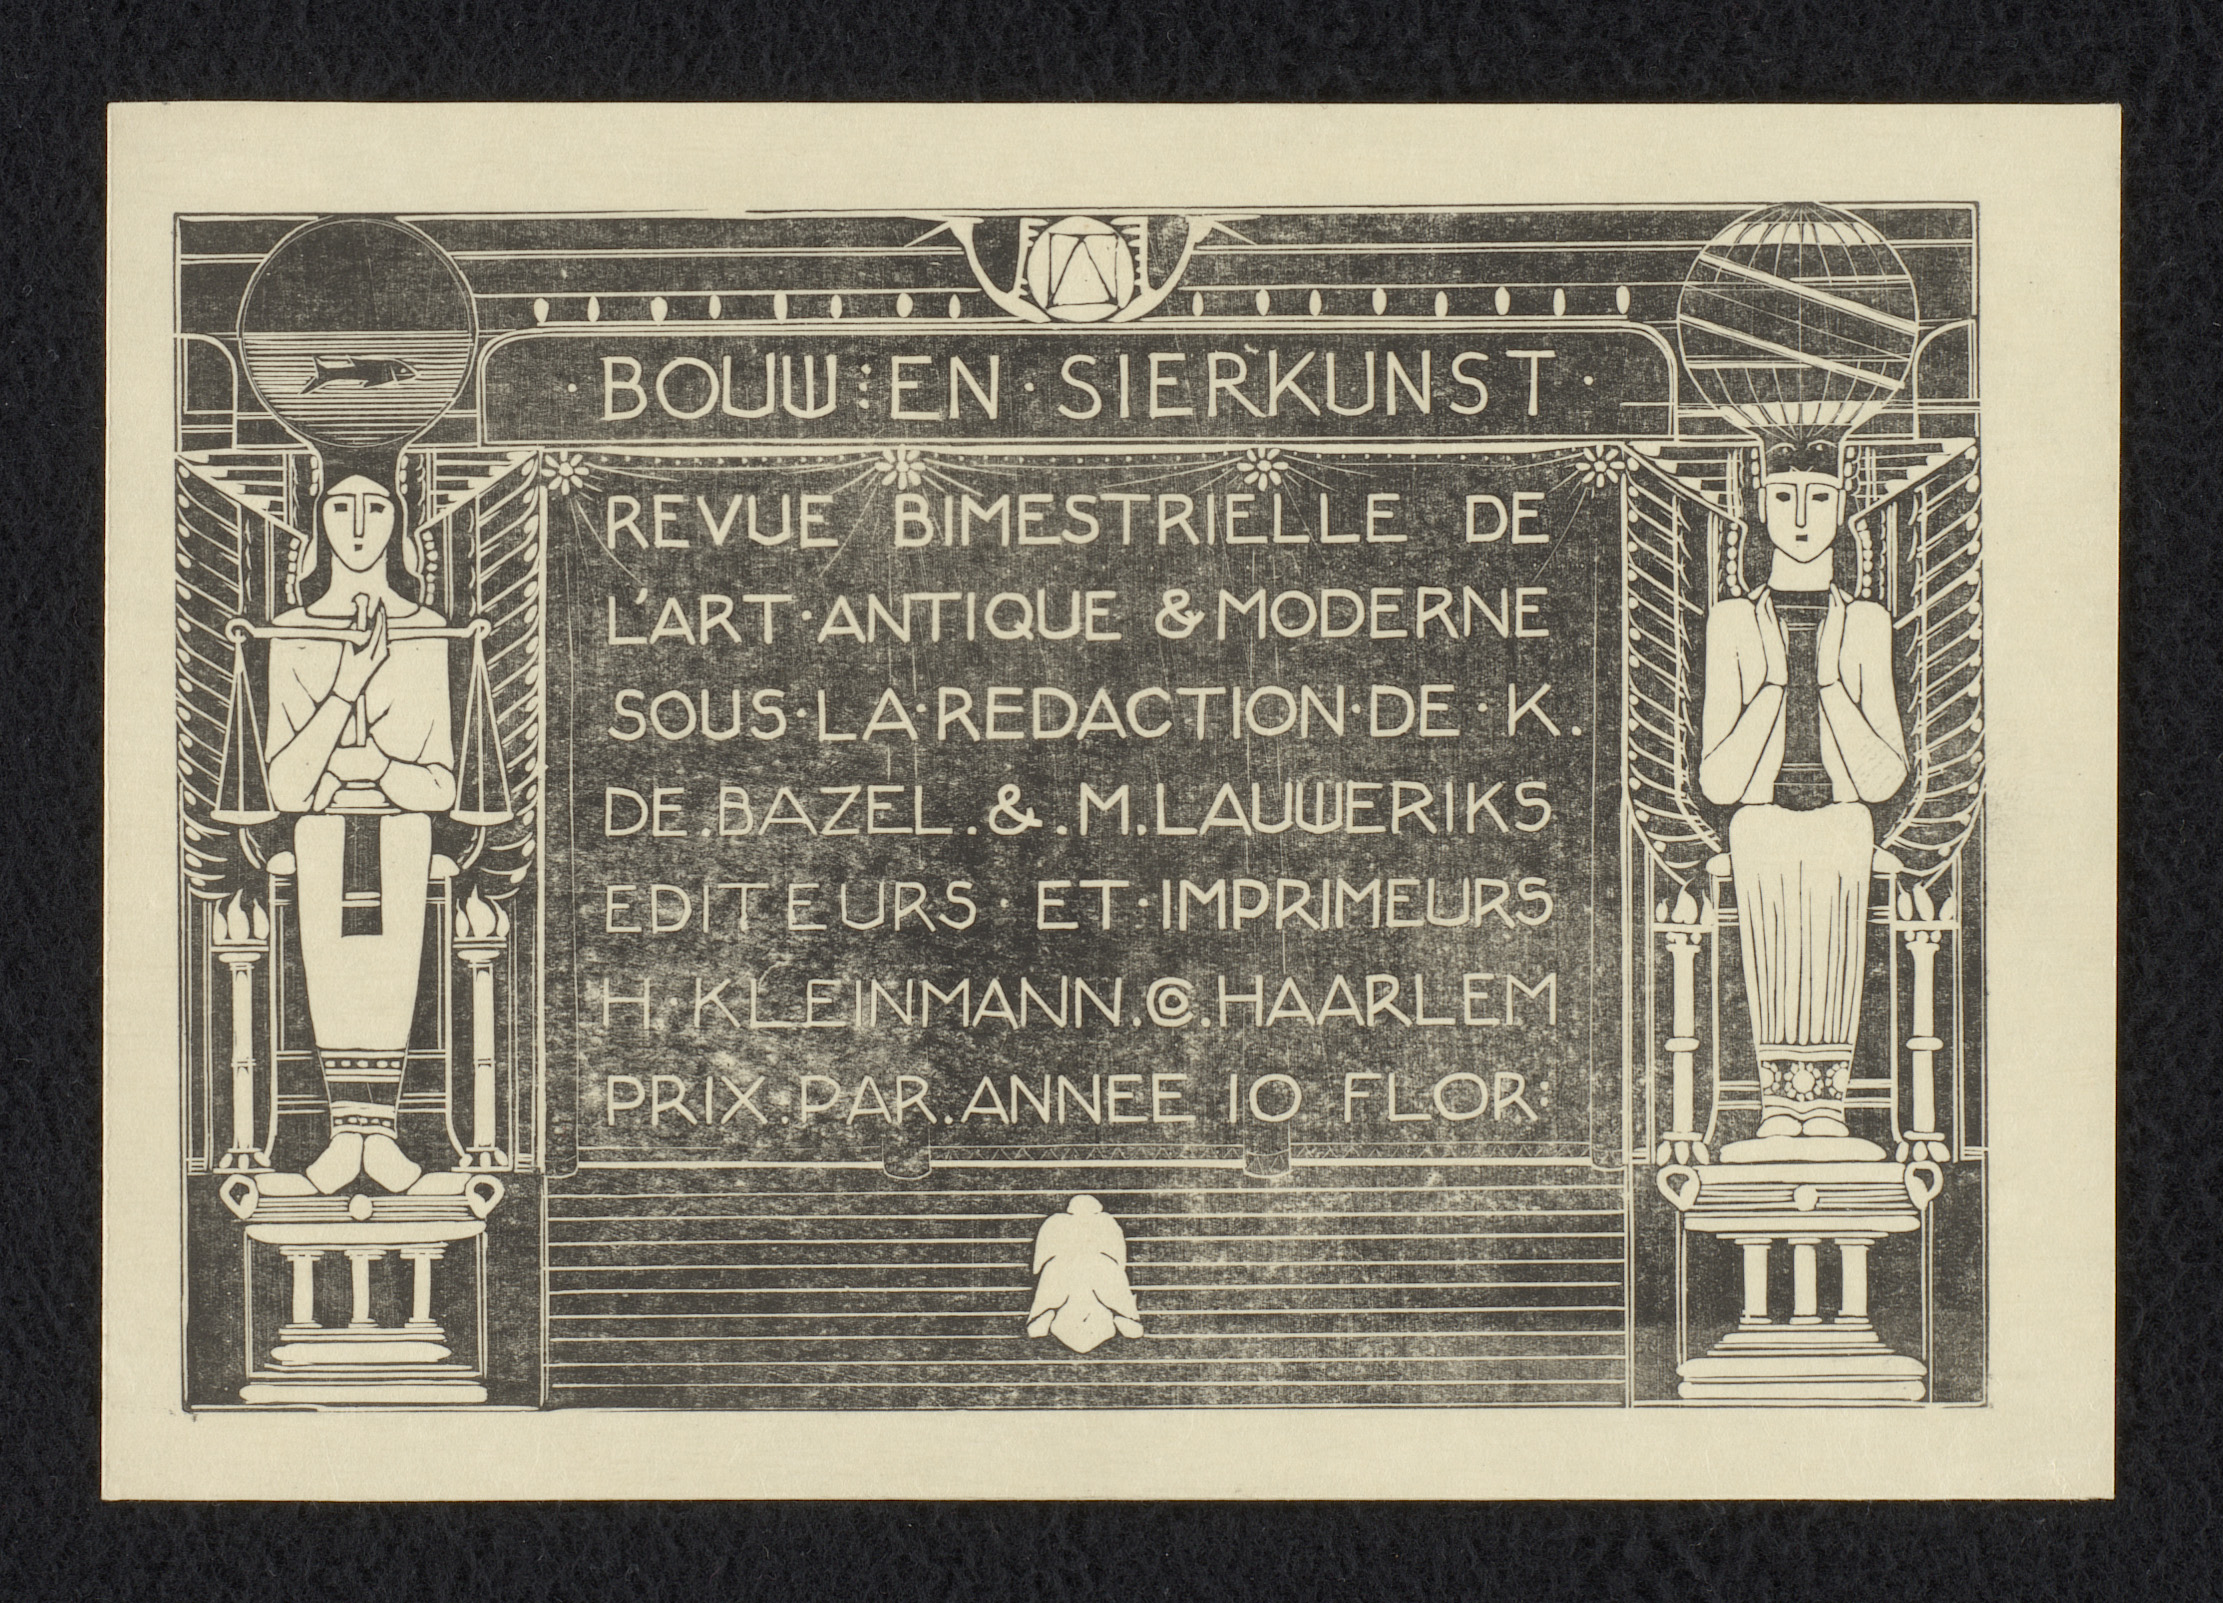 · BOUW : EN · SIERKUNST ·
REVUE BIMESTRIELLE DE
L'ART · ANTIQUE & MODERNE
SOUS · LA · REDACTION · DE · K.
DE . BAZEL . & . M . LAUWERIKS
EDITEURS · ET · IMPRIMEURS
H · KLEINMANN . & Co . HAARLEM
PRIX . PAR . ANNEE 10 FLOR :